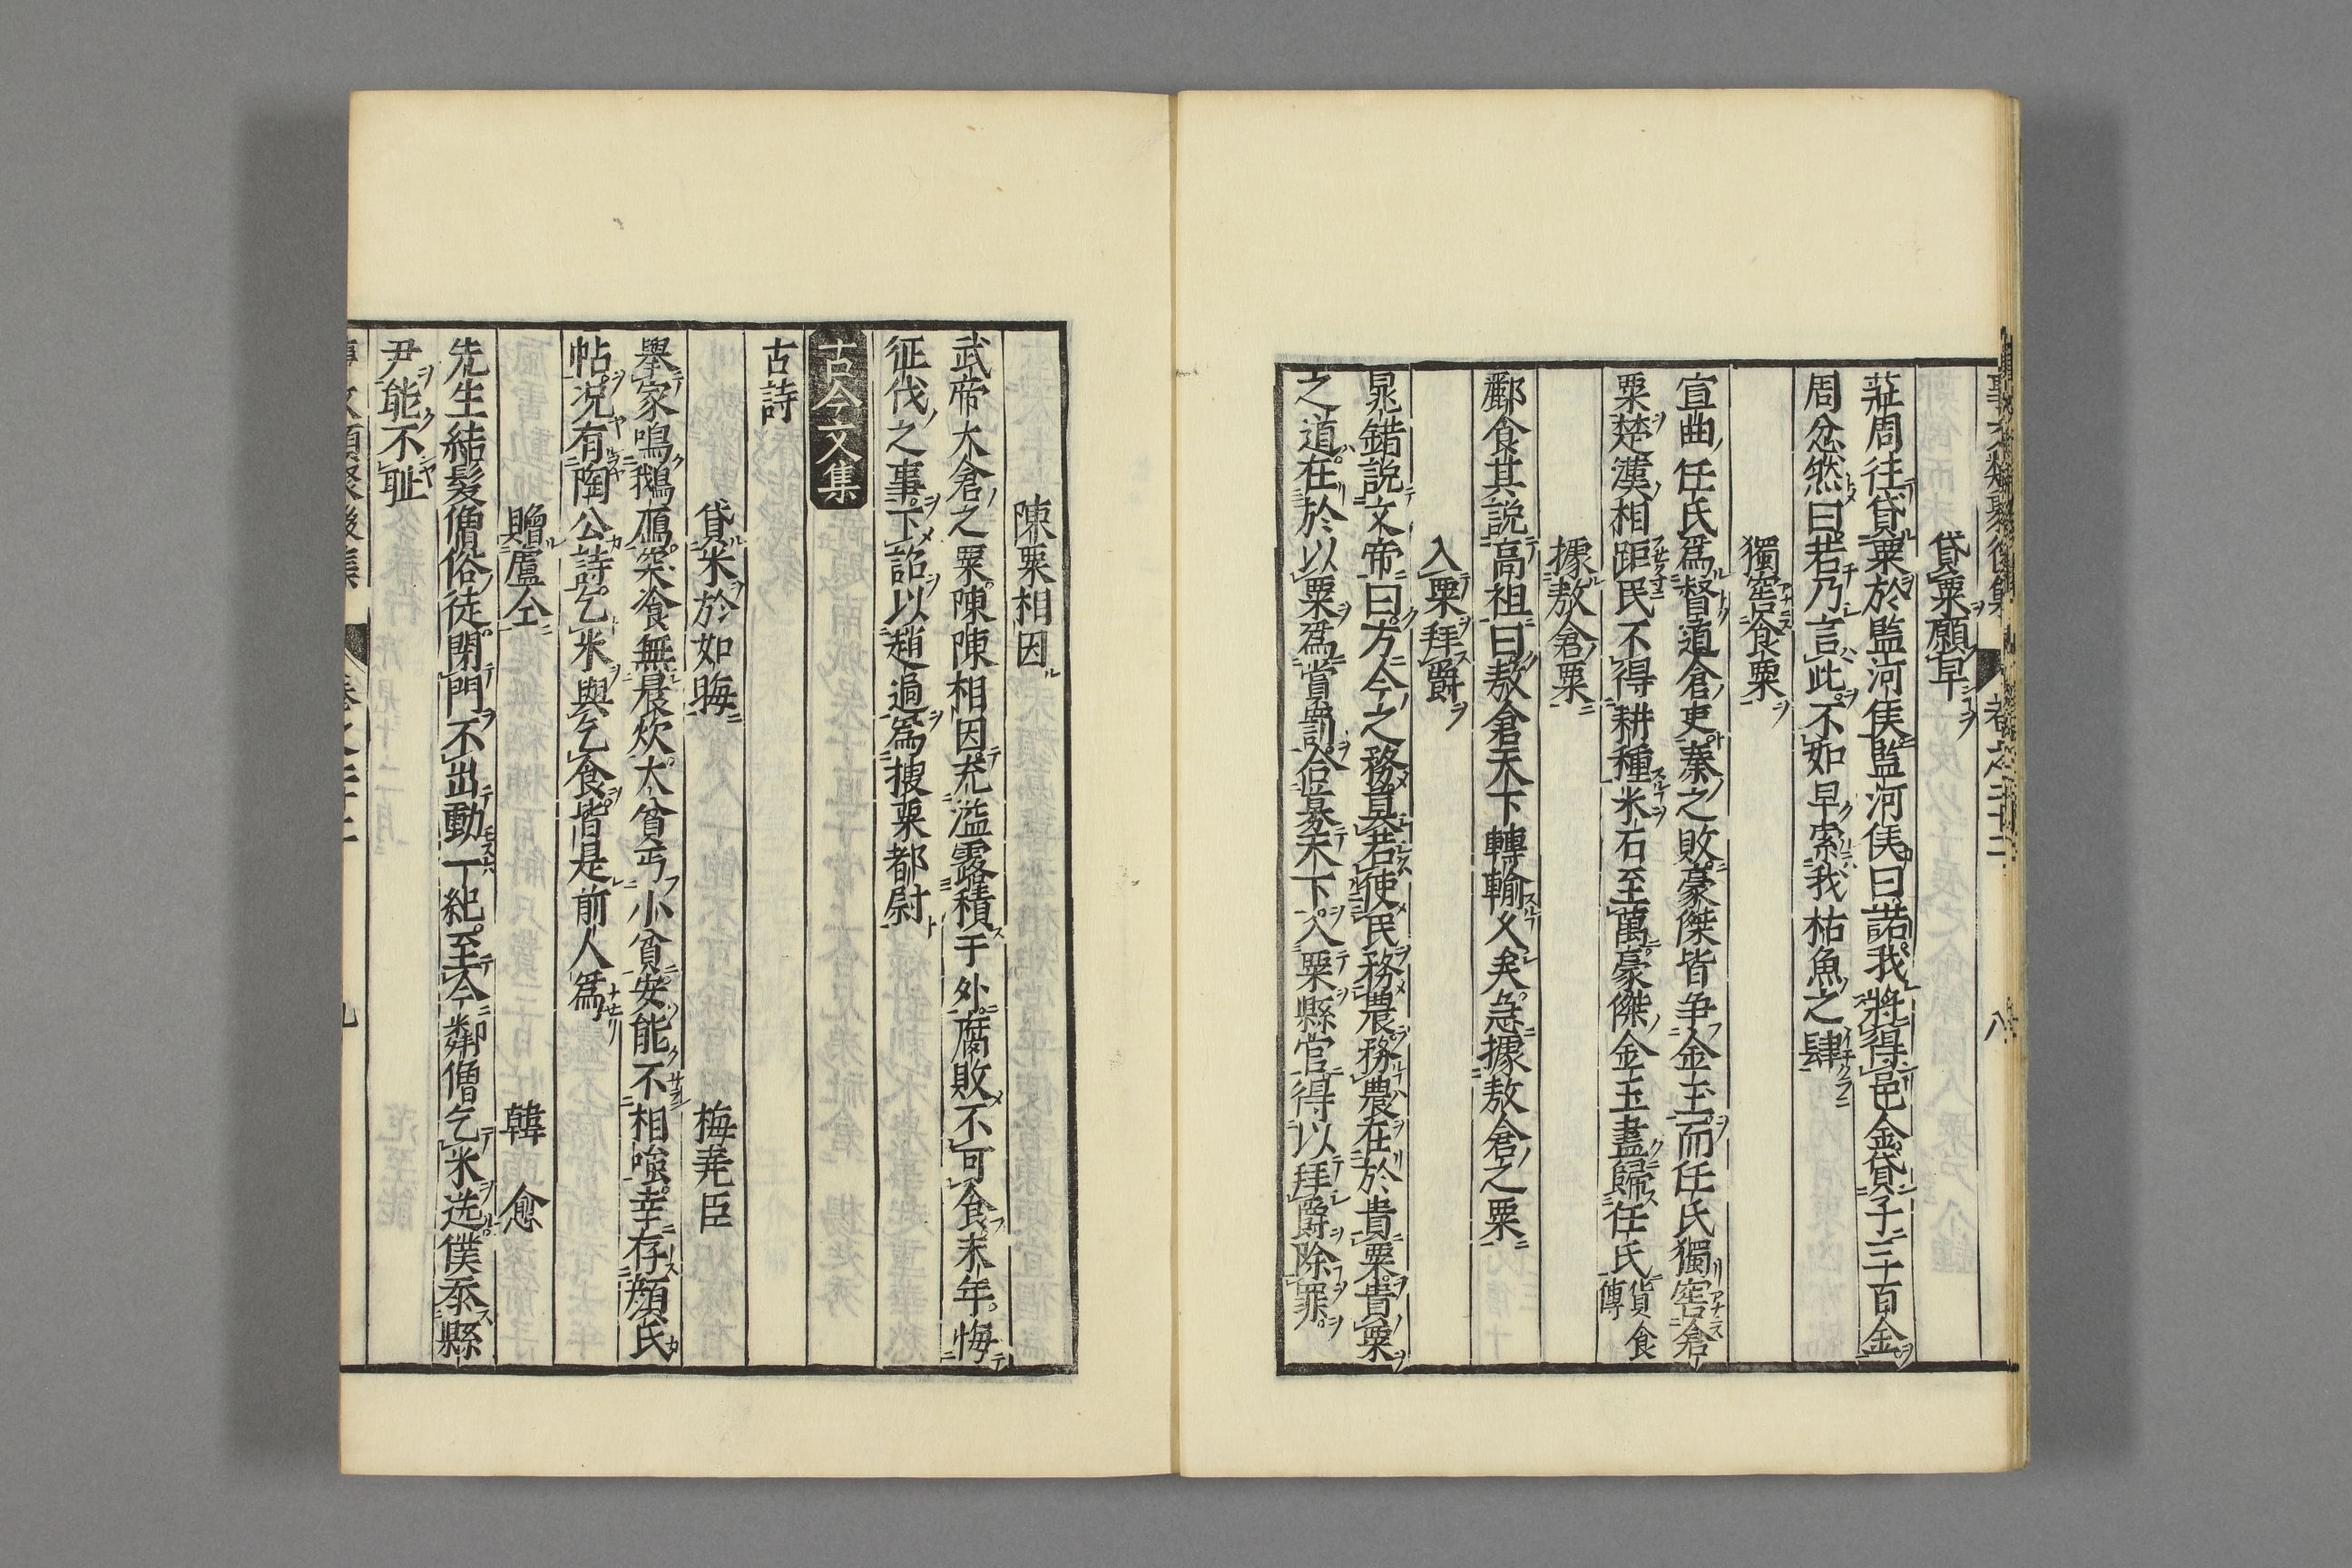 貸粟願早
莊周往貸粟於監河侯監河侯曰諾我將得邑金貸子三百金
周忿然曰若乃言此不如早索我枯魚之肆
獨窖食粟
宣曲任氏爲督道倉吏秦之敗豪傑皆争金玉而任氏獨窖倉
粟楚漢相距民不得耕種米石至萬豪傑金玉盡歸任氏貨食傳
據敖倉粟
酈食其説高祖曰敖倉天下轉輸久矣急據敖倉之粟
入粟拜爵
晁錯説文帝曰方今之務莫若使民務農務農在於貴粟貴粟
之道在於以粟爲賞罰合募天下入粟縣官得以拜爵除罪
陳粟相因
武帝太倉之粟陳陳相因充溢露積于外腐敗不可食末年悔
征伐之事下詔以趙過爲搜粟都尉
古今文集
古詩
貸米於如晦 梅堯臣
舉家鳴鵝鴈突冷無晨炊大貧丐小貧安能不相嗤幸存顔氏
帖況有陶公詩乞米與乞食皆是前人爲
贈盧仝 韓愈
先生結髮僧俗徒閉門不出動一紀至今鄰僧乞米送僕忝縣
尹能不耻